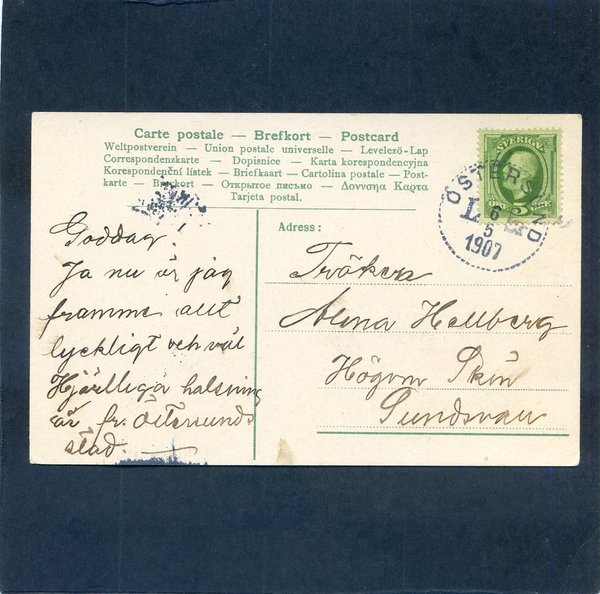 Carte postale — Brefkort — Postcard
Weltpostverein — Union postale universelle — Levelező-Lap
Correspondenzkarte — Dopisnice — Karta korespondencyjna
Korespondenční lístek — Briefkaart — Cartolina postale — Post-
karte — Brevkort — Открытое письмо — Δοννσηα Καρτα
Tarjeta postal.
SVERIGE
5
ÖSTERSUND
6
5
1907
Goddag!
Ja nu är jag
framme allt
lyckligt och väl
Hjärtliga halsning
är fr. Östersunds
stad. —
Adress:
Fröken
Alma Hellberg
Högom Skön
Sundsvall